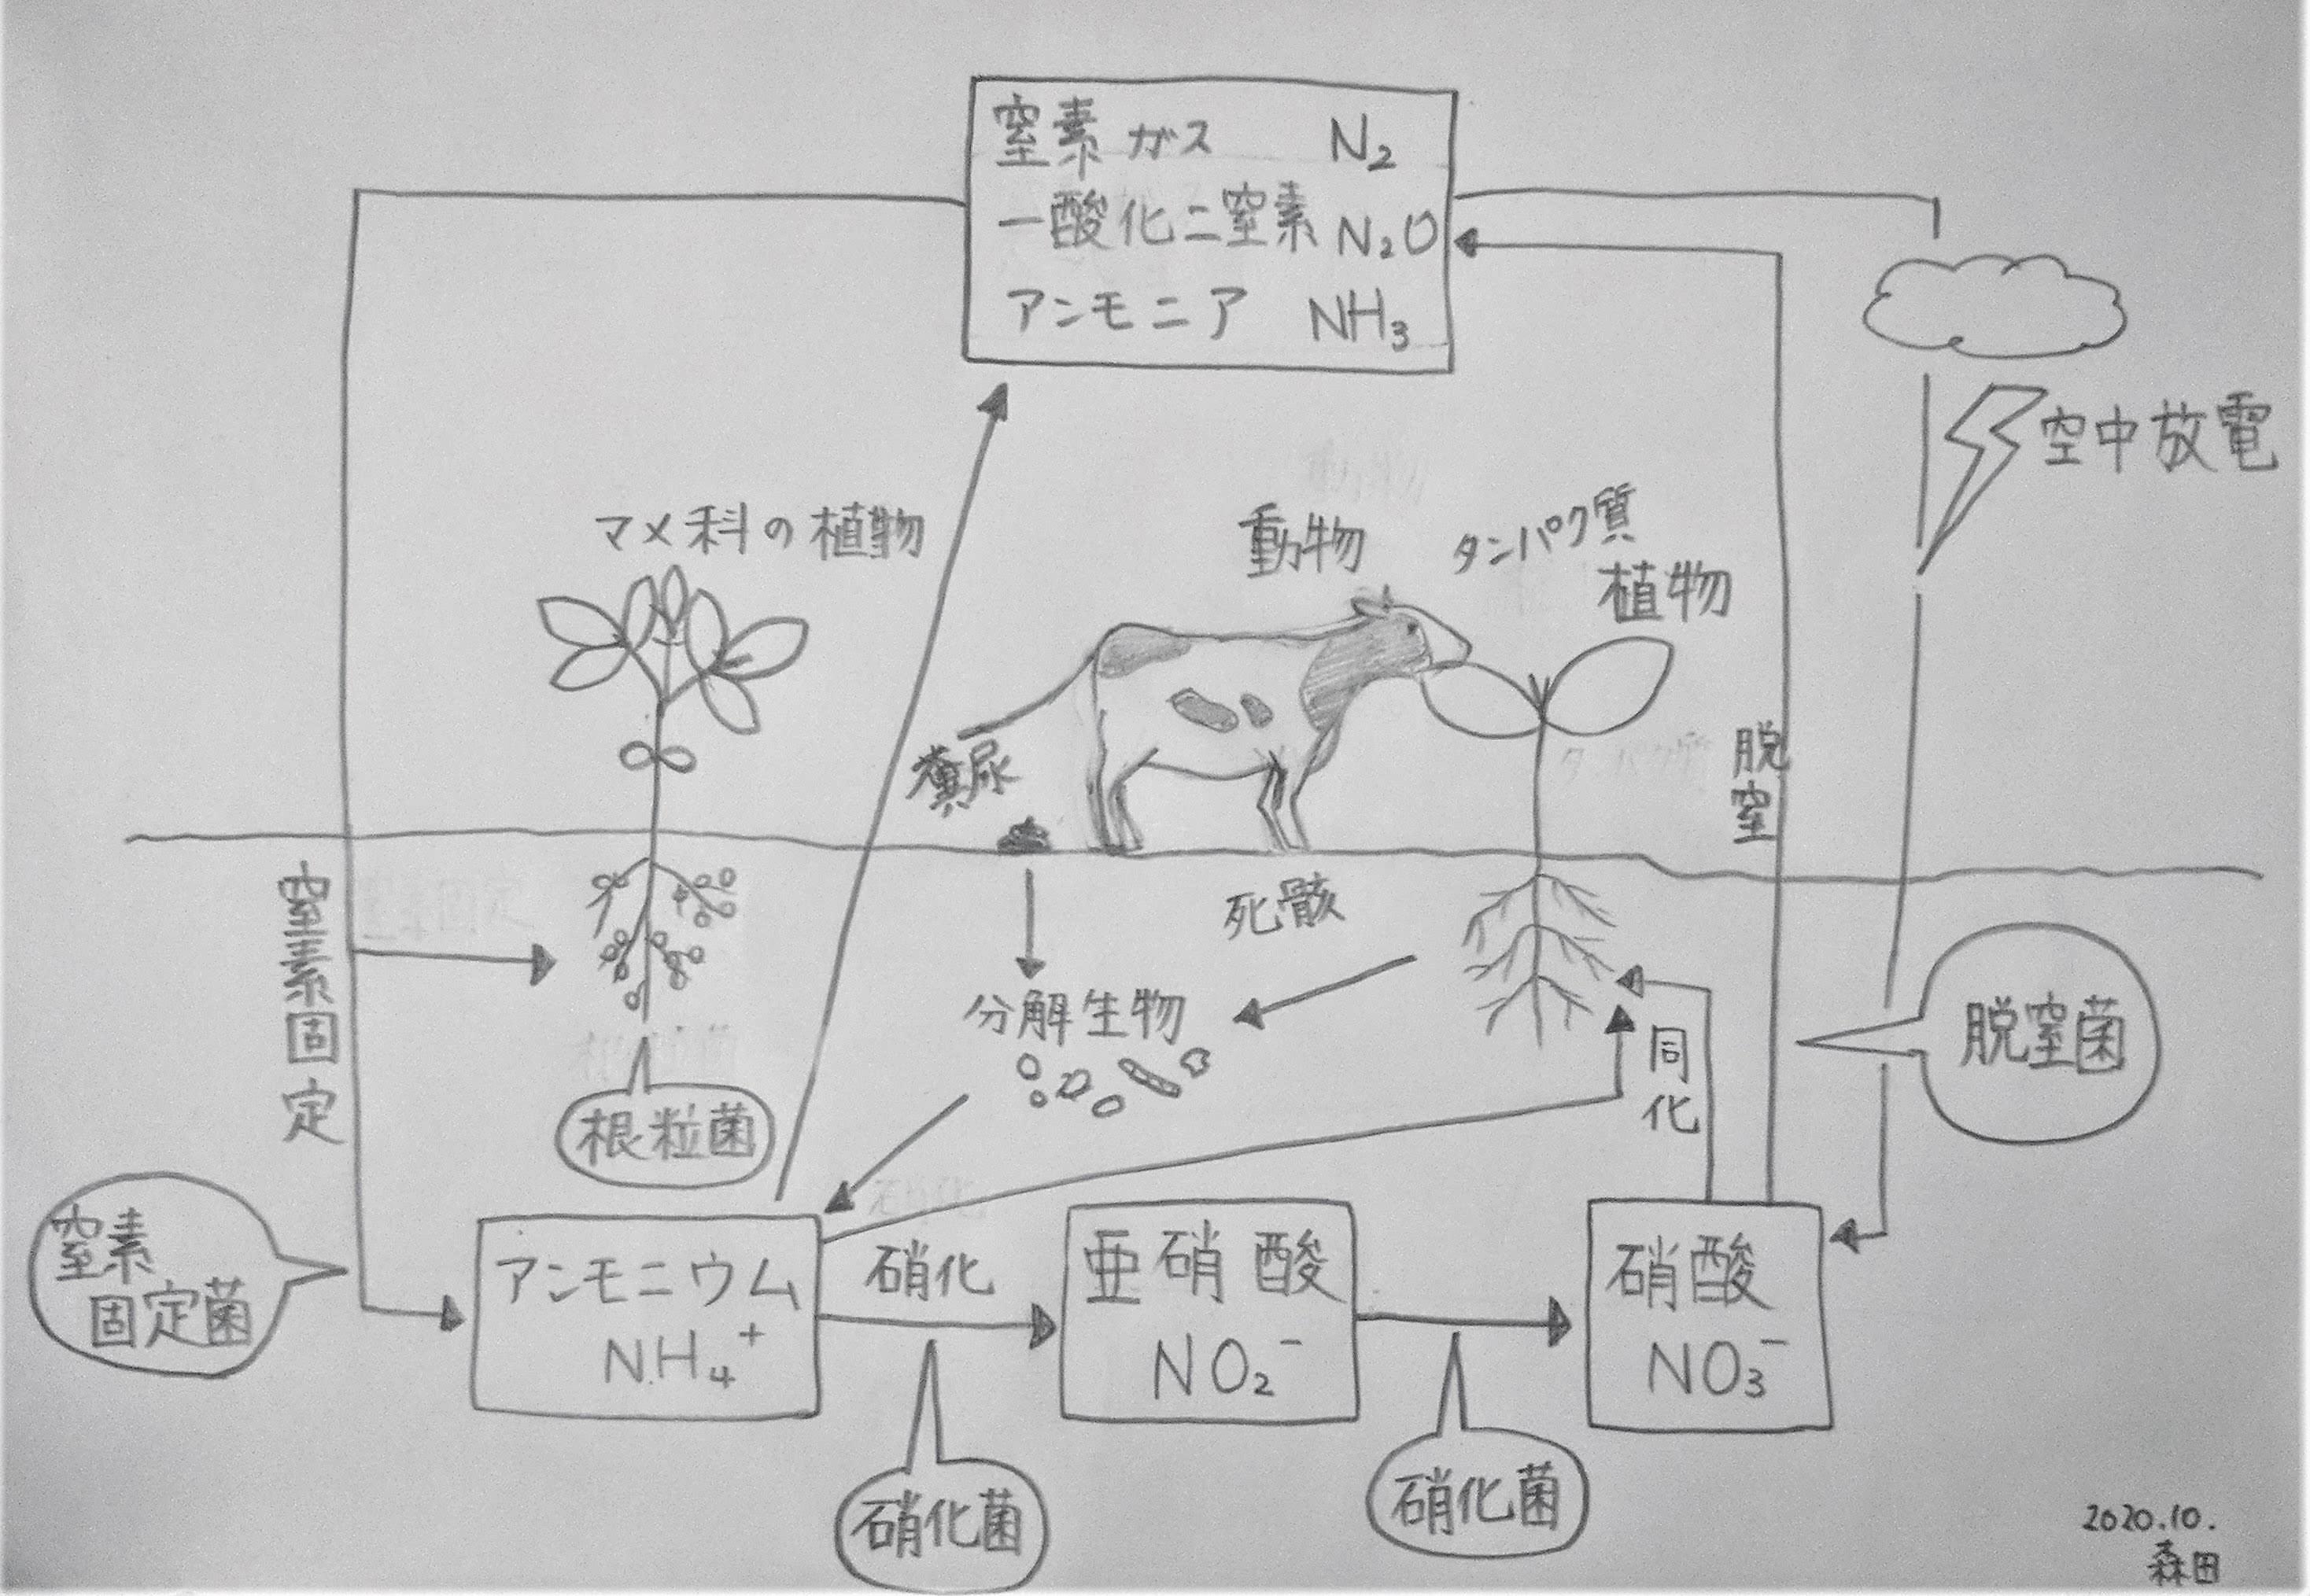 窒素ガス N₂
一酸化二窒素 N₂O
アンモニア NH₃
空中放電
マメ科の植物
動物
タンパク質
植物
糞尿
脱窒
窒素固定
死骸
分解生物
同化
脱窒菌
根粒菌
窒素
固定菌
アンモニウム
NH₄⁺
硝化
亜硝酸
NO₂⁻
硝酸
NO₃⁻
硝化菌
硝化菌
2020.10.
森田